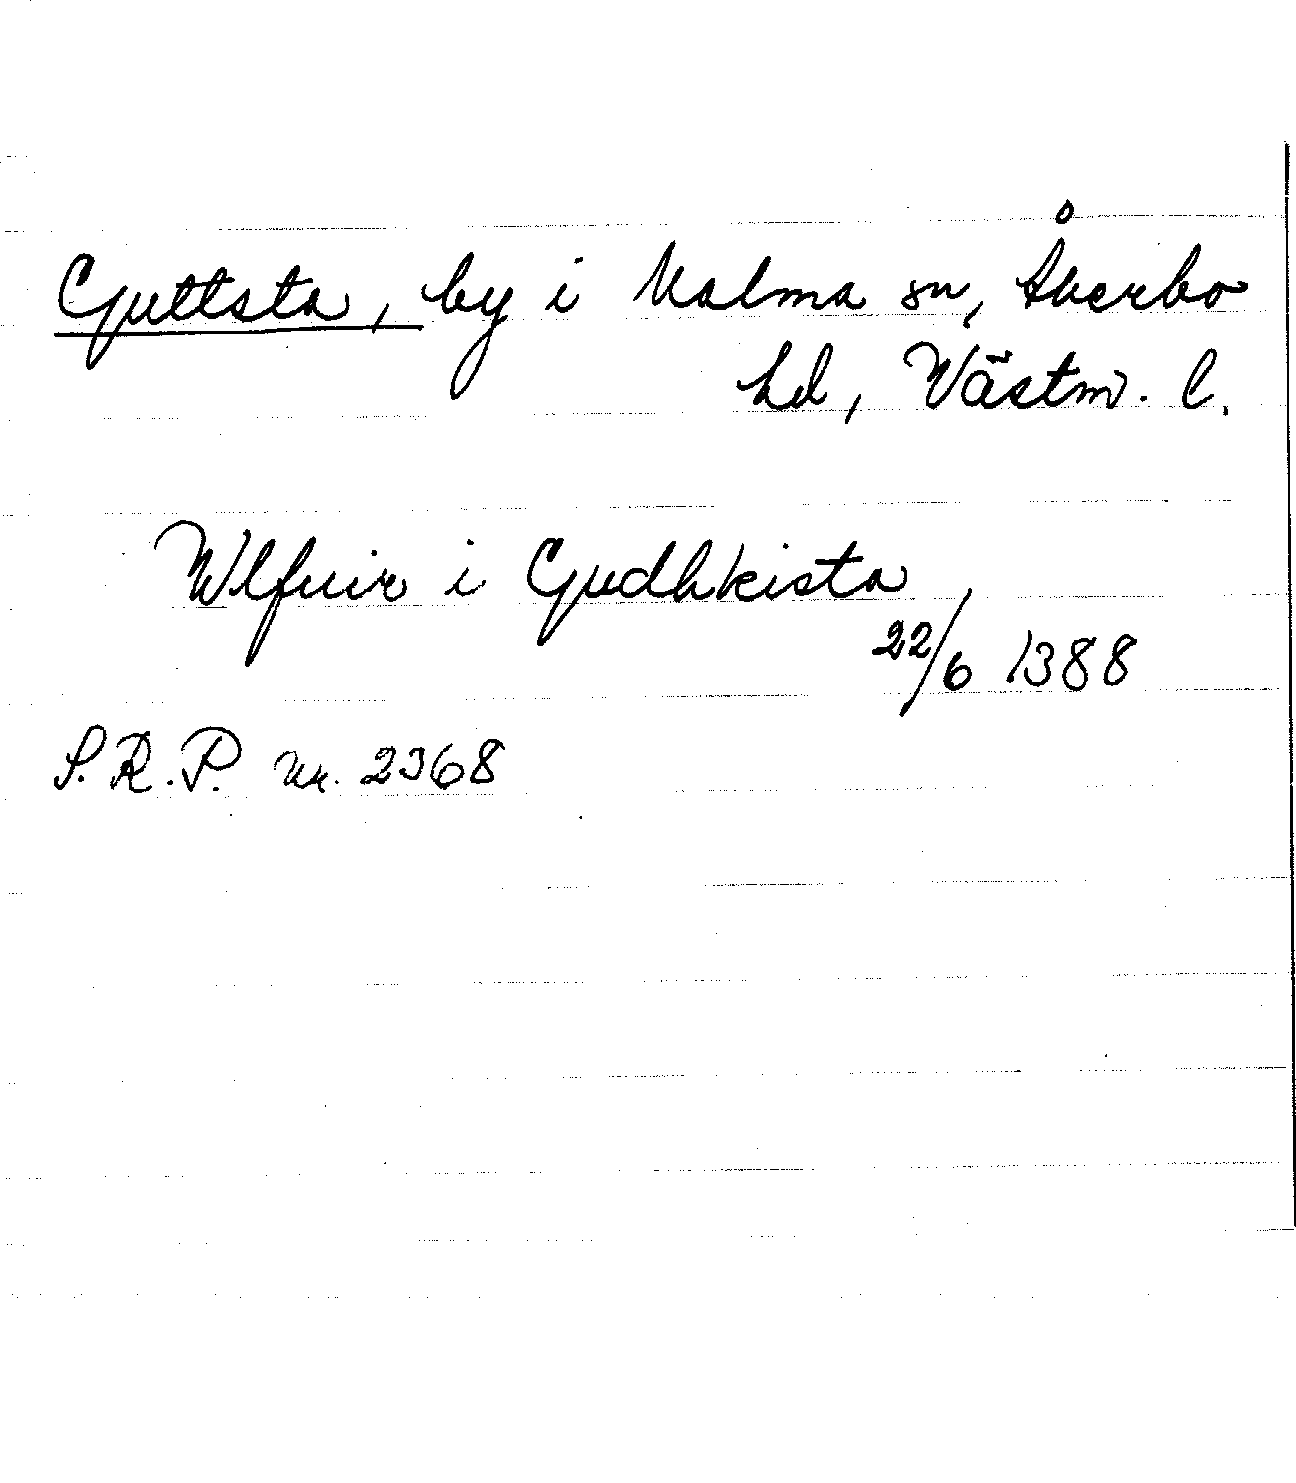 Guttsta, by i Malma sn, Åkerbo
hd, Västm. l.
Wlfuir i Gudhkista
22/6 1388
S.R.P. nr. 2368